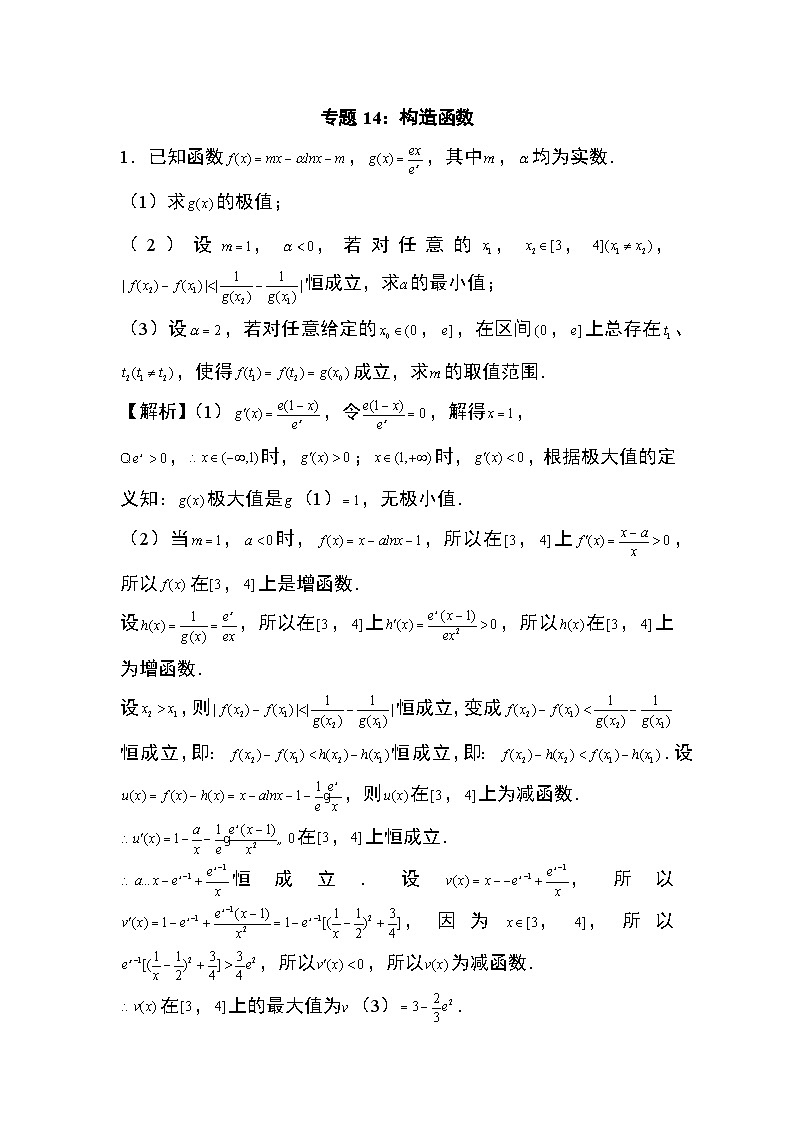 专题 14：构造函数
1．已知函数 f(x) = mx − αlnx − m，g(x) = ex/e^x，其中 m，α 均为实数．
（1）求 g(x) 的极值；
（2）设 m = 1，α < 0，若对任意的 x₁，x₂ ∈ [3，4](x₁ ≠ x₂)，
| f(x₂) − f(x₁) |<| 1/g(x₂) − 1/g(x₁) | 恒成立，求 a 的最小值；
（3）设 α = 2，若对任意给定的 x₀ ∈ (0，e]，在区间 (0，e] 上总存在 t₁、
t₂(t₁ ≠ t₂)，使得 f(t₁) = f(t₂) = g(x₀) 成立，求 m 的取值范围．
【解析】（1）g′(x) = e(1 − x)/e^x，令 e(1 − x)/e^x = 0，解得 x = 1，
Q e^x > 0，∴ x ∈ (−∞,1) 时，g′(x) > 0；x ∈ (1,+∞) 时，g′(x) < 0，根据极大值的定
义知：g(x) 极大值是 g（1）= 1，无极小值．
（2）当 m = 1，a < 0 时，f(x) = x − alnx − 1，所以在 [3，4] 上 f′(x) = (x − a)/x > 0，
所以 f(x) 在 [3，4] 上是增函数．
设 h(x) = 1/g(x) = e^x/ex，所以在 [3，4] 上 h′(x) = e^x(x − 1)/ex² > 0，所以 h(x) 在 [3，4] 上
为增函数．
设 x₂ > x₁，则 | f(x₂) − f(x₁) |<| 1/g(x₂) − 1/g(x₁) | 恒成立，变成 f(x₂) − f(x₁) < 1/g(x₂) − 1/g(x₁)
恒成立，即：f(x₂) − f(x₁) < h(x₂) − h(x₁) 恒成立，即：f(x₂) − h(x₂) < f(x₁) − h(x₁)．设
u(x) = f(x) − h(x) = x − alnx − 1 − 1/e g e^x/x，则 u(x) 在 [3，4] 上为减函数．
∴ u′(x) = 1 − a/x − 1/e g e^x(x − 1)/x² „ 0 在 [3，4] 上恒成立．
∴ a…x − e^(x−1) + e^(x−1)/x 恒成立．设 v(x) = x − −e^(x−1) + e^(x−1)/x，所以
v′(x) = 1 − e^(x−1) + e^(x−1)(x − 1)/x² = 1 − e^(x−1)[(1/x − 1/2)² + 3/4]，因为 x ∈ [3，4]，所以
e^(x−1)[(1/x − 1/2)² + 3/4] > 3/4 e²，所以 v′(x) < 0，所以 v(x) 为减函数．
∴ v(x) 在 [3，4] 上的最大值为 v（3）= 3 − 2/3 e²．